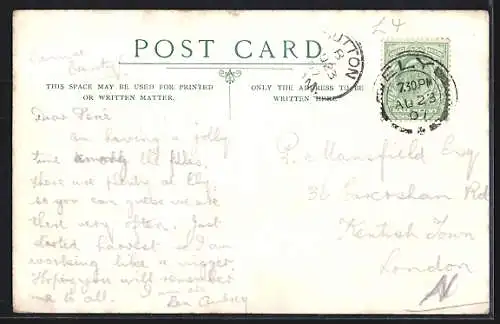 £4
POST CARD
THIS SPACE MAY BE USED FOR PRINTED
OR WRITTEN MATTER.
ONLY THE ADDRESS TO BE
WRITTEN HERE.
SUTTON
B
ELY
7.30PM
AU 23
07
Dear
am having a jolly
time the
There are plenty at Ely,
so you can guess we are
there very often. Just
started harvest & I am
working like a nigger.
Hoping you will remember
me to all.
Mansfield Esq
36 Rd
Kentish Town
London
N